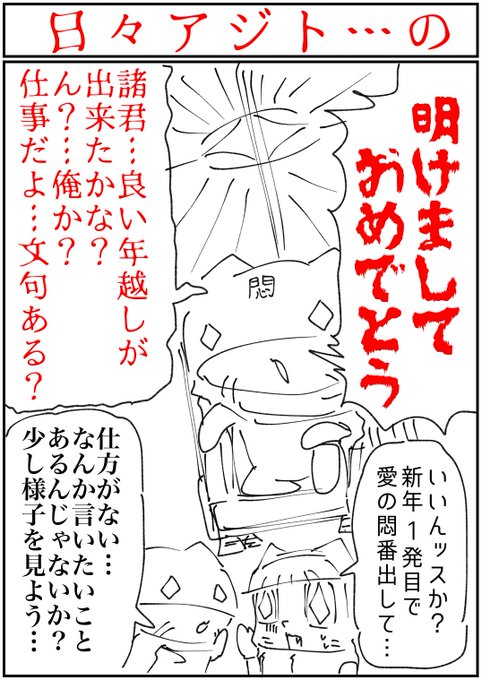 日々アジト…の
明けまして
おめでとう
諸君…良い年越しが
出来たかな？
ん？…俺か？
仕事だよ…文句ある？
悶
いいんッスか？
新年１発目で
愛の悶番出して…
仕方がない…
なんか言いたいこと
あるんじゃないか？
少し様子を見よう…